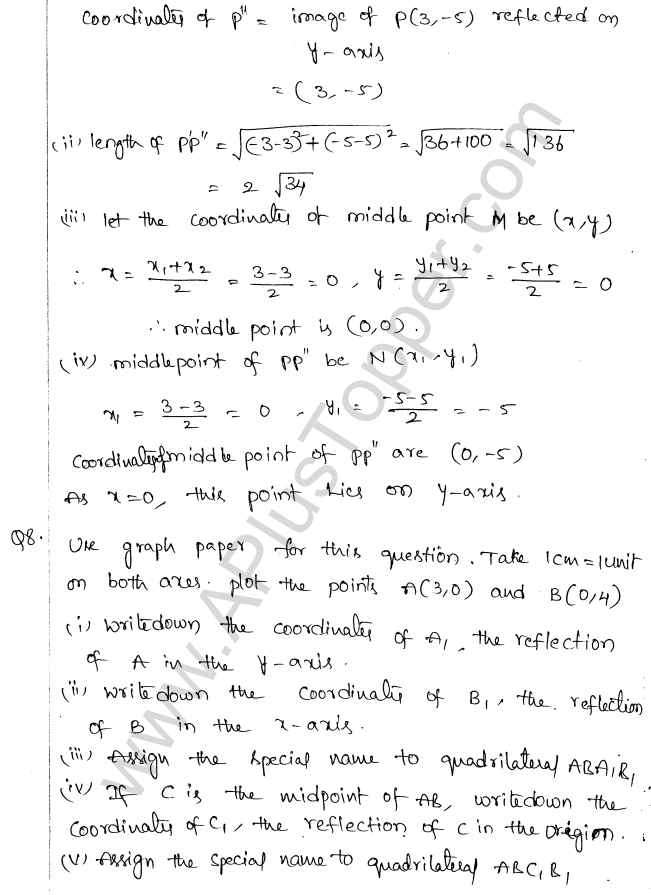 Coordinates of P" = image of P(3,-5) reflected on
y-axis
= (3,-5)
(ii) length of P'P" = √(-3-3)²+(-5-5)² = √36+100 = √136
= 2 √34
(iii) let the coordinates of middle point M be (x,y)
∴ x = x₁+x₂/2 = 3-3/2 = 0, y = y₁+y₂/2 = -5+5/2 = 0
∴ middle point is (0,0).
(iv) middlepoint of PP" be N(x₁,y₁)
x₁ = 3-3/2 = 0, y₁ = -5-5/2 = -5
Coordinates of middle point of PP" are (0,-5)
As x=0, this point lies on y-axis.
Q8. Use graph paper for this question. Take 1cm=1unit
on both axes. plot the points A(3,0) and B(0,4)
(i) Writedown the coordinates of A₁, the reflection
of A in the y-axis.
(ii) Writedown the coordinates of B₁, the reflection
of B in the x-axis.
(iii) Assign the special name to quadrilateral ABA₁B₁
(iv) If C is the midpoint of AB, writedown the
Coordinates of C₁, the reflection of C in the origion.
(v) Assign the special name to quadrilateral ABC₁B₁
www.APlusTopper.com